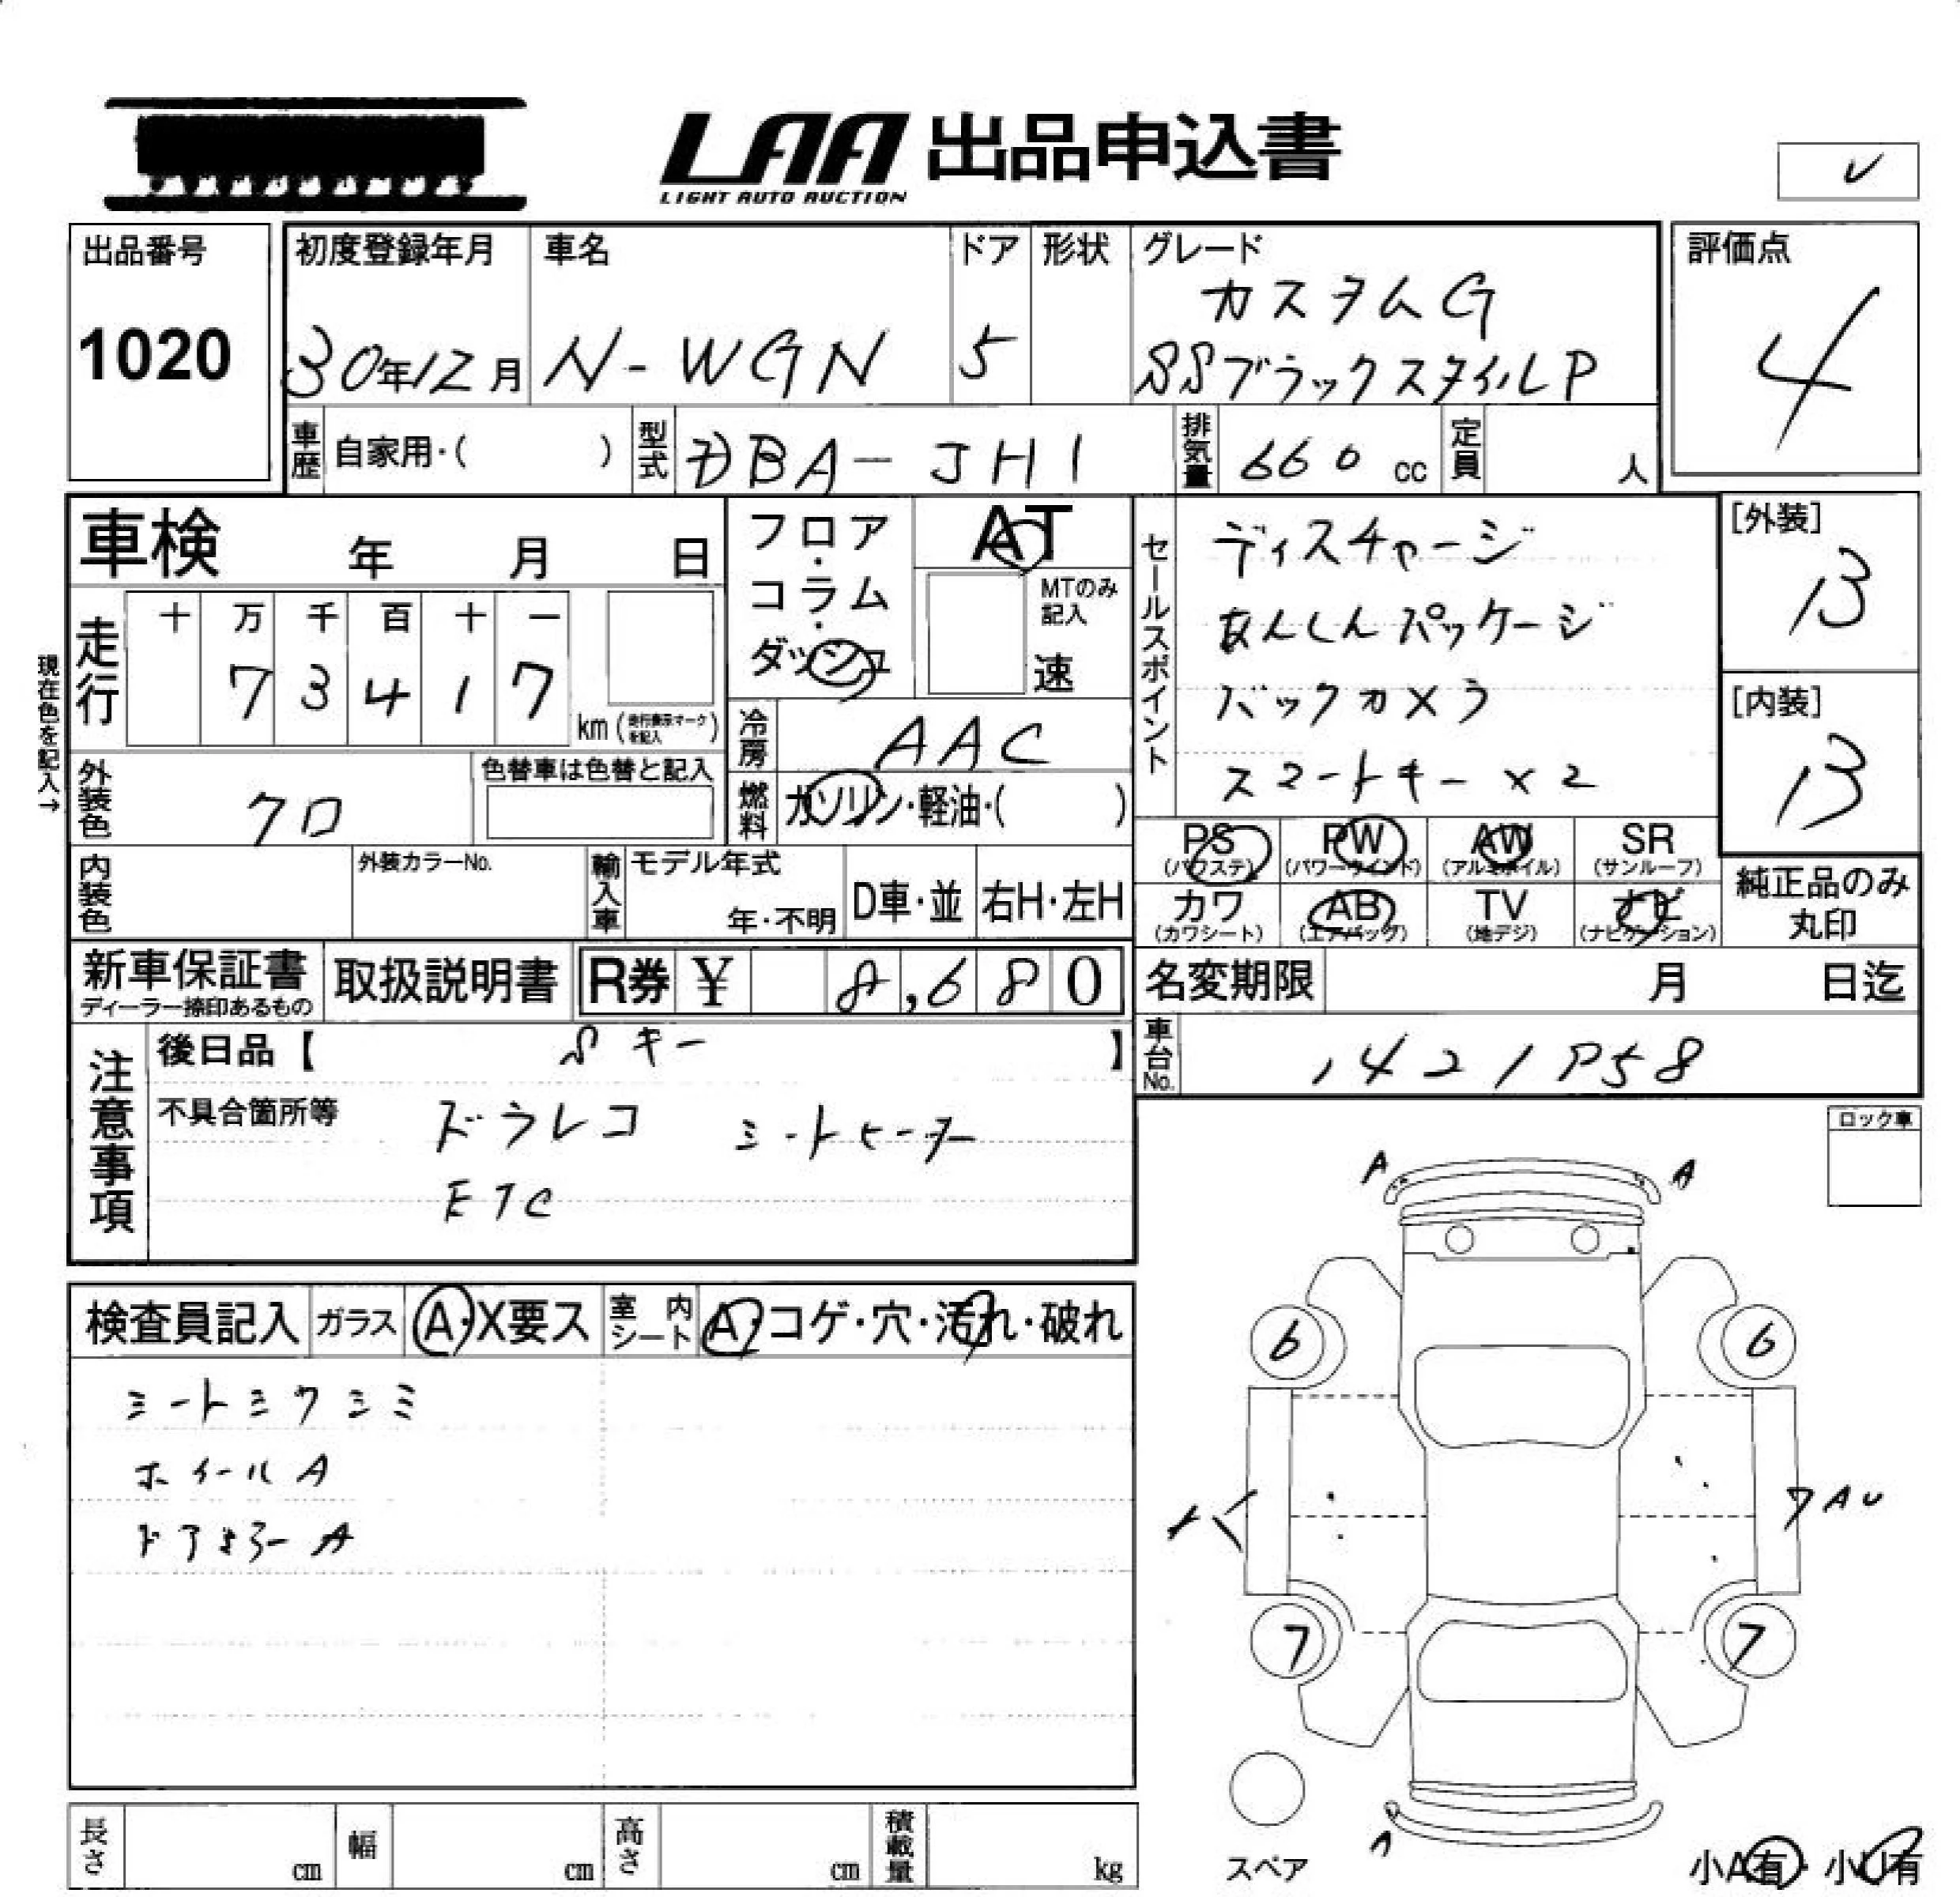 LAA 出品申込書
LIGHT AUTO AUCTION
出品番号
1020
初度登録年月
30年12月
車名
N-WGN
ドア
5
形状
グレード
カスタムG
SSブラックスタイルP
評価点
4
車歴 自家用・( )
型式 DBA-JH1
排気量 660 cc
定員 人
車検 年 月 日
フロア・コラム・ダッシュ
AT
MTのみ記入
速
現在色を記入→
走行
十 万 千 百 十 一
7 3 4 1 7
km (走行表示マークを記入)
冷房 AAC
燃料 ガソリン・軽油・( )
外装色 クロ
色替車は色替と記入
内装色
外装カラーNo.
輸入車
モデル年式
年・不明
D車・並
右H・左H
セールスポイント
ディスチャージ
あんしんパッケージ
バックカメラ
スマートキー×2
[外装]
13
[内装]
13
PS (パワステ)
PW (パワーウインド)
AW (アルミホイル)
SR (サンルーフ)
カワ (カワシート)
AB (エアバッグ)
TV (地デジ)
ナビ (ナビゲーション)
純正品のみ
丸印
新車保証書
ディーラー捺印あるもの
取扱説明書
R券 ¥ 8,680
名変期限 月 日迄
注意事項
後日品【 Sキー 】
不具合箇所等
ドラレコ シートヒーター
ETC
車台No.
ロック車
A A
検査員記入
ガラス A・X要ス
室内シート A・コゲ・穴・汚れ・破れ
シートミウシミ
ホイールA
ドアミラーA
6 6
ワAU
7 7
スペア
小A有・小U有
長さ cm
幅 cm
高さ cm
積載量 kg